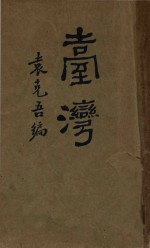 臺灣
袁克吾編